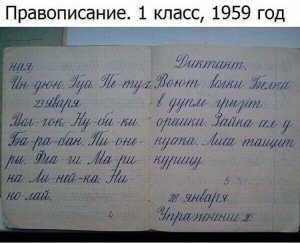 Правописание. 1 класс, 1959 год
ная
Ин-дюк. Гусь. Пе-тух.
23 января.
Вол-чок. Ку-би-ки.
Ба-ра-бан. Пи-оне-
ры. Фла-ги. Ма-ри-
на. Ли-ней-ка. Ни-
ко-лай.
4
Диктант.
Воют волки. Белка
в дупле грызёт
орешки. Зайка сел у
куста. Лиса тащит
курицу.
5
января.
Упражнение